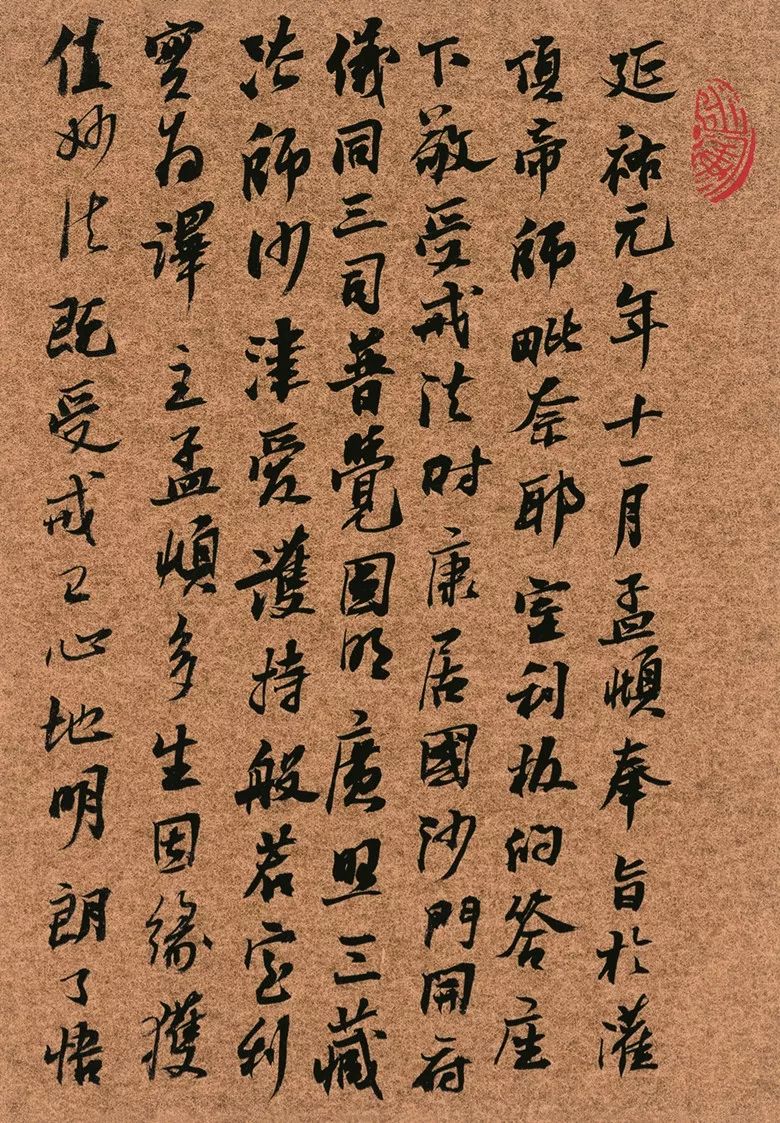 延祐元年十一月孟頫奉旨於灌
頂帝師毗奈耶室利板的答座
下敬受戒法时康居國沙門開府
儀同三司普覺圓明廣照三藏
法師沙津愛護持般若室利
實為譯主孟頫多生因緣獲
值妙法既受戒已心地明朗了悟